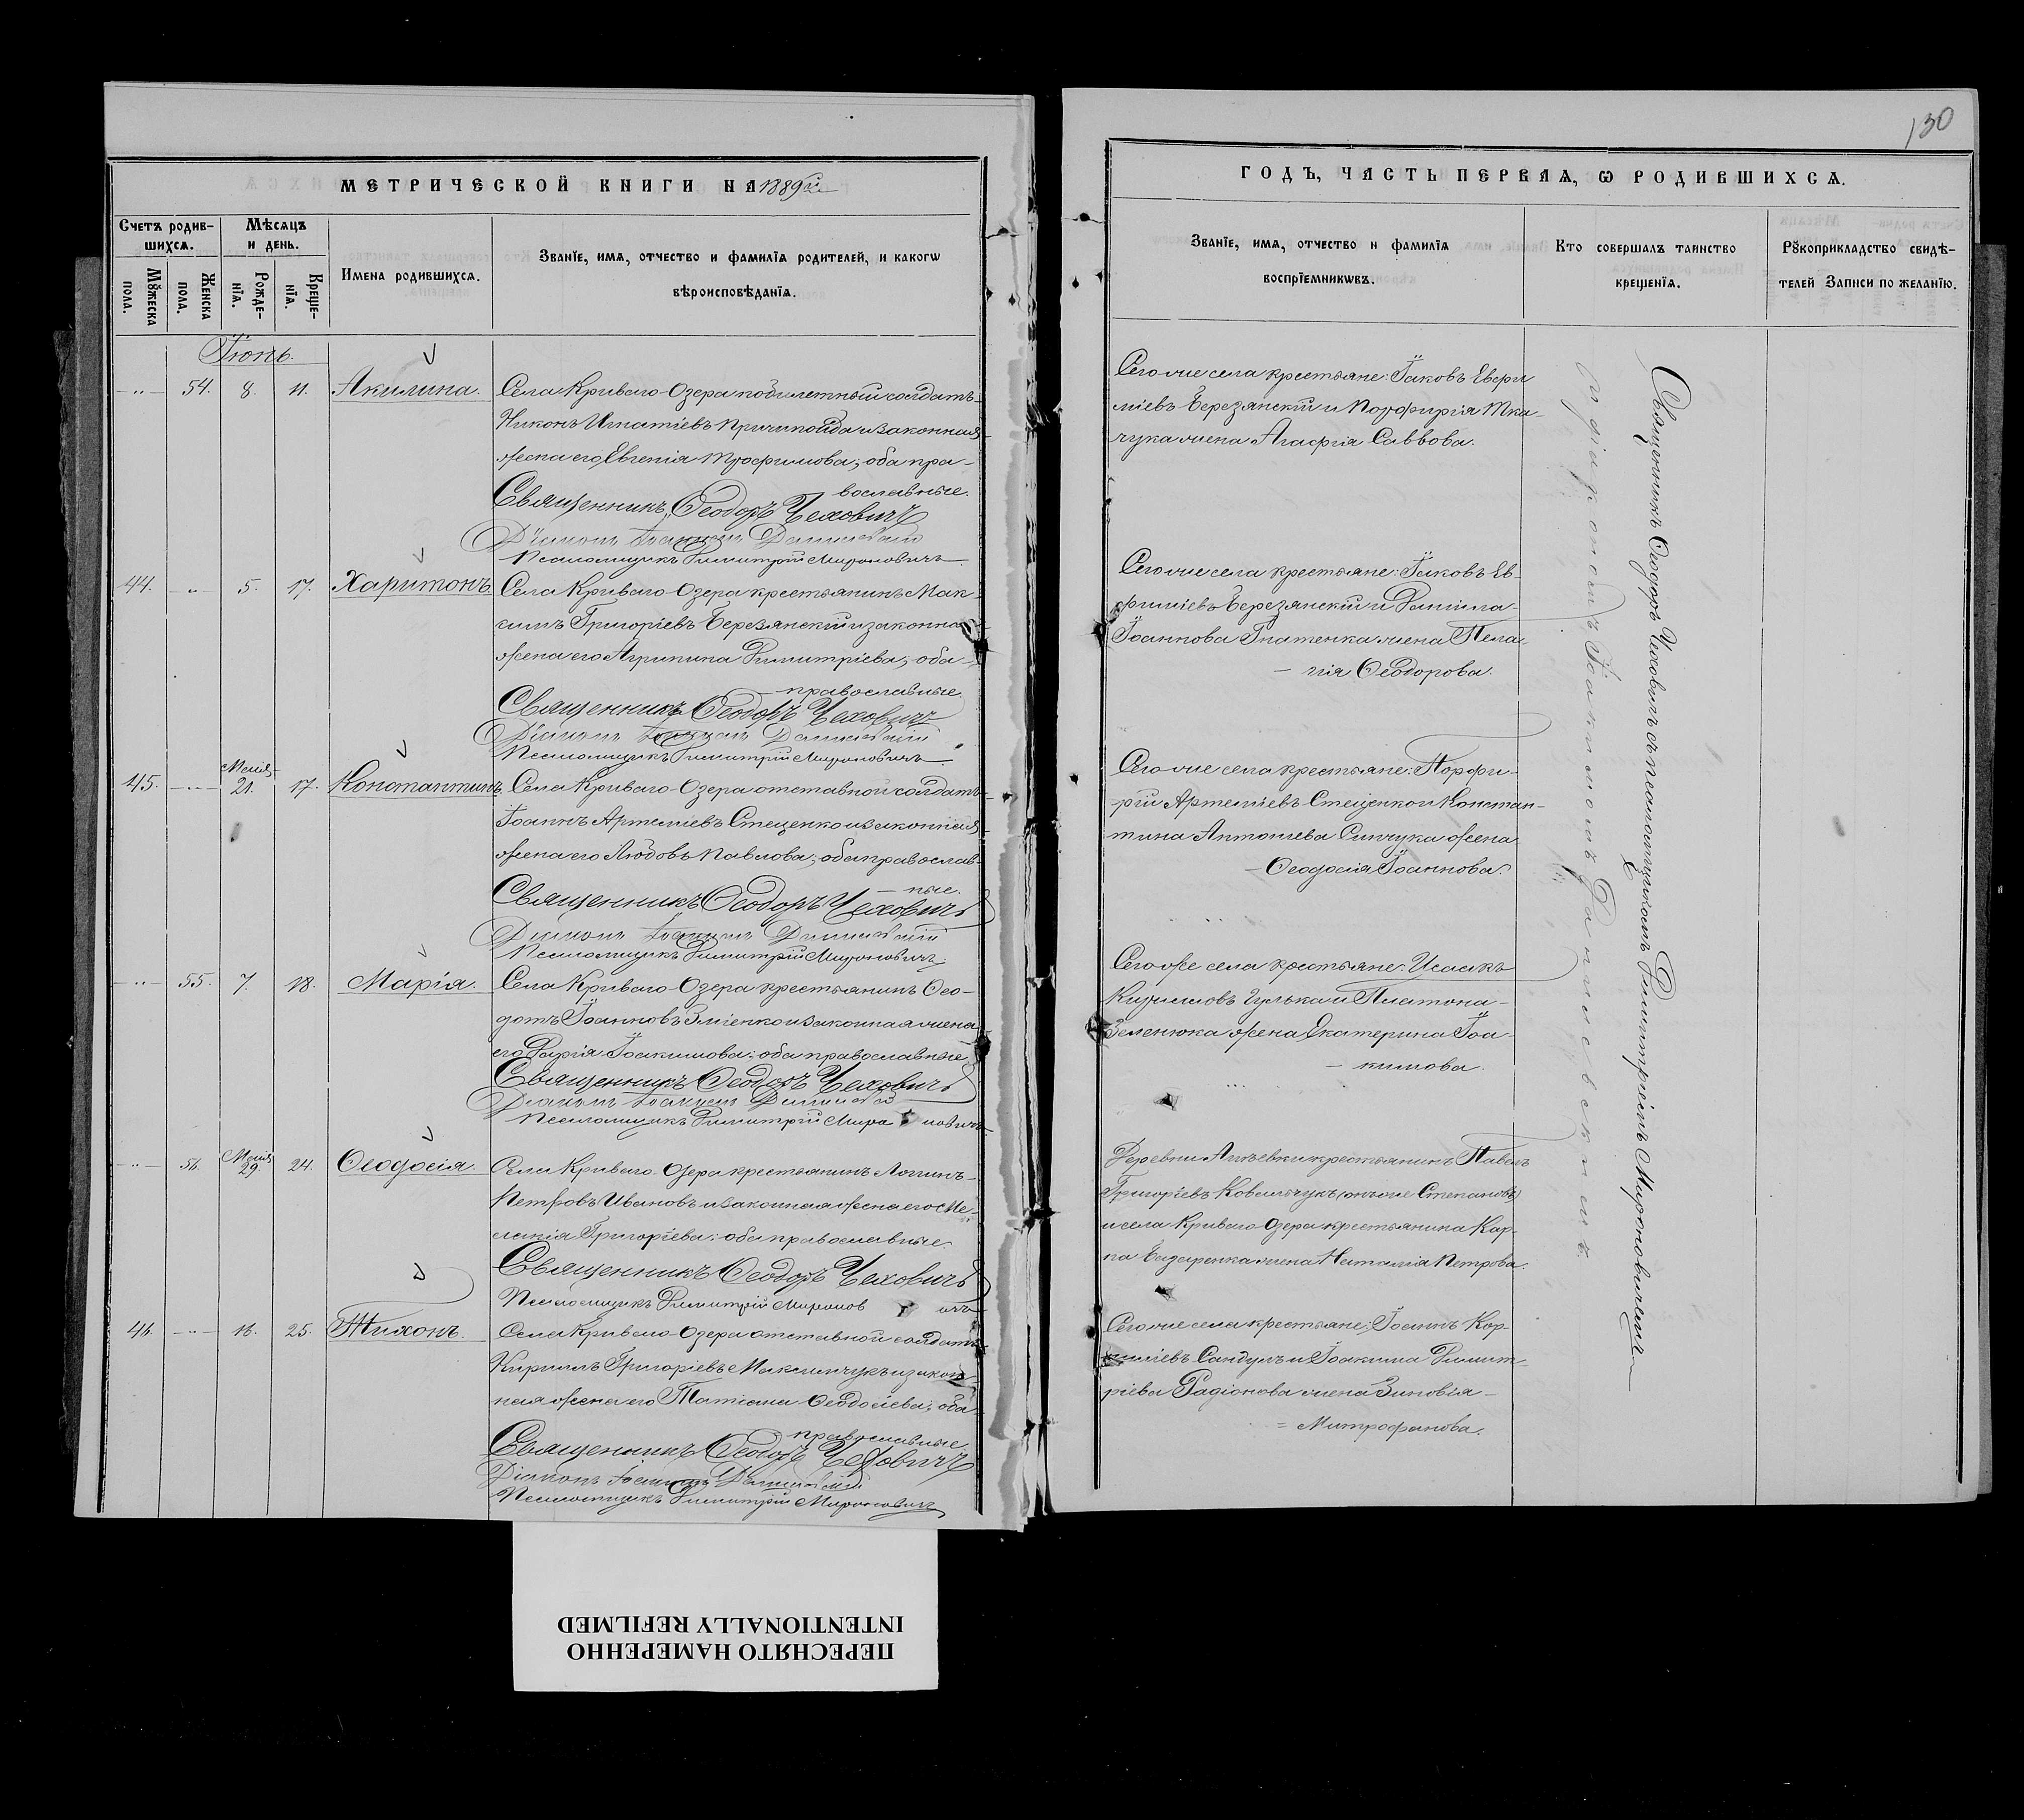 130
МЕТРИЧЕСКОЙ КНИГИ НА 1889й
Счетъ родив-
шихсѧ.
Мѣсѧцъ
и день.
Мꙋжеска
пола.
Женска
пола.
Рожде-
нїѧ.
Креще-
нїѧ.
Имена родившихсѧ.
Званїе, имѧ, отчество и фамилїѧ родителей, и какогѡ
вѣроисповѣданїѧ.
Іюнь.
54. 8. 11. Акилина.
Села Криваго-Озера побилетный солдатъ
Никонъ Игнатіевъ и законная
жена его Евгенія Трофимова; оба пра-
вославные.
Священникъ Ѳеодоръ Чеховичъ
Діаконъ Іоакимъ Данилевскій
Псаломщикъ Димитрій Мироновичъ
44. 5. 17. Харитонъ.
Села Криваго-Озера крестьянинъ Мак-
симъ Григоріевъ Березянскій и законная
жена его Агрипина Димитріева; оба
православные
Священникъ Ѳеодоръ Чеховичъ
Діаконъ Іоакимъ Данилевскій
Псаломщикъ Димитрій Мироновичъ
45. Маія 21. 17. Константинъ.
Села Криваго-Озера отставной солдатъ
Іоаннъ Артеміевъ Стеценко и законная
жена его Любовь Павлова; оба православ-
ные.
Священникъ Ѳеодоръ Чеховичъ
Діаконъ Іоакимъ Данилевскій
Псаломщикъ Димитрій Мироновичъ
55. 7. 18. Марія.
Села Криваго-Озера крестьянинъ Ѳео-
дотъ Іоанновъ Зміенко и законная жена
его Дарія Іоакимова; оба православные
Священникъ Ѳеодоръ Чеховичъ
Діаконъ Іоакимъ Данилевскій
Псаломщикъ Димитрій Мироновичъ
56. Маія 29. 24. Ѳеодосія.
Села Криваго-Озера крестьянинъ Логинъ
Петровъ Ивановъ и законная жена его Ме-
ланія Григоріева; оба православные
Священникъ Ѳеодоръ Чеховичъ
Псаломщикъ Димитрій Мироновичъ
46. 16. 25. Тихонъ.
Села Криваго-Озера отставной солдатъ
Кириллъ Григоріевъ Максимчукъ и закон-
ная жена его Татіана Ѳеодосіева; оба
православные
Священникъ Ѳеодоръ Чеховичъ
Діаконъ Іоакимъ Данилевскій
Псаломщикъ Димитрій Мироновичъ
ГОДЪ, ЧАСТЬ ПЕРВАѦ, Ѡ РОДИВШИХСѦ.
Званїе, имѧ, отчество и фамилїѧ
воспрїемникѡвъ.
Кто совершалъ таинство
крещенїѧ.
Рꙋкоприкладство свидѣ-
телей Записи по желанїю.
Сего же села крестьяне: Іаковъ Евфи
міевъ Березянскій и Порфирія Тка-
чука жена Агафія Саввова.
Сего же села крестьяне: Іаковъ Ев-
фиміевъ Березянскій и Даніила
Іоаннова Гнатенка жена Пела-
гія Ѳеодорова.
Сего же села крестьяне: Порфи-
рій Артеміевъ Стеценко и Констан-
тина Антоніева Синчука жена
Ѳеодосія Іоаннова.
Сего же села крестьяне: Исаакъ
Кирилловъ Гулька и Платона
Зеленюка жена Екатерина Іоа-
кимова.
Деревни крестьянинъ Павелъ
Григоріевъ Ковальчукъ (онъ же Степановъ)
и села Криваго-Озера крестьянина Кар-
па жена Наталія Петрова.
Сего же села крестьяне: Іоаннъ Кор-
ниліевъ Сандулъ и Іоакима Димит-
ріева Радіонова жена Зиновія
Митрофанова.
Священникъ Ѳеодоръ Чеховичъ съ псаломщикомъ Димитріемъ Мироновичемъ
и діакономъ Іоакимомъ Данилевскимъ.
ПЕРЕСНЯТО НАМЕРЕННО
INTENTIONALLY REFILMED